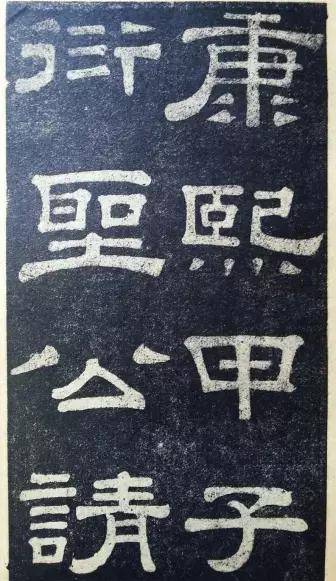 康熙甲子
衍聖公請